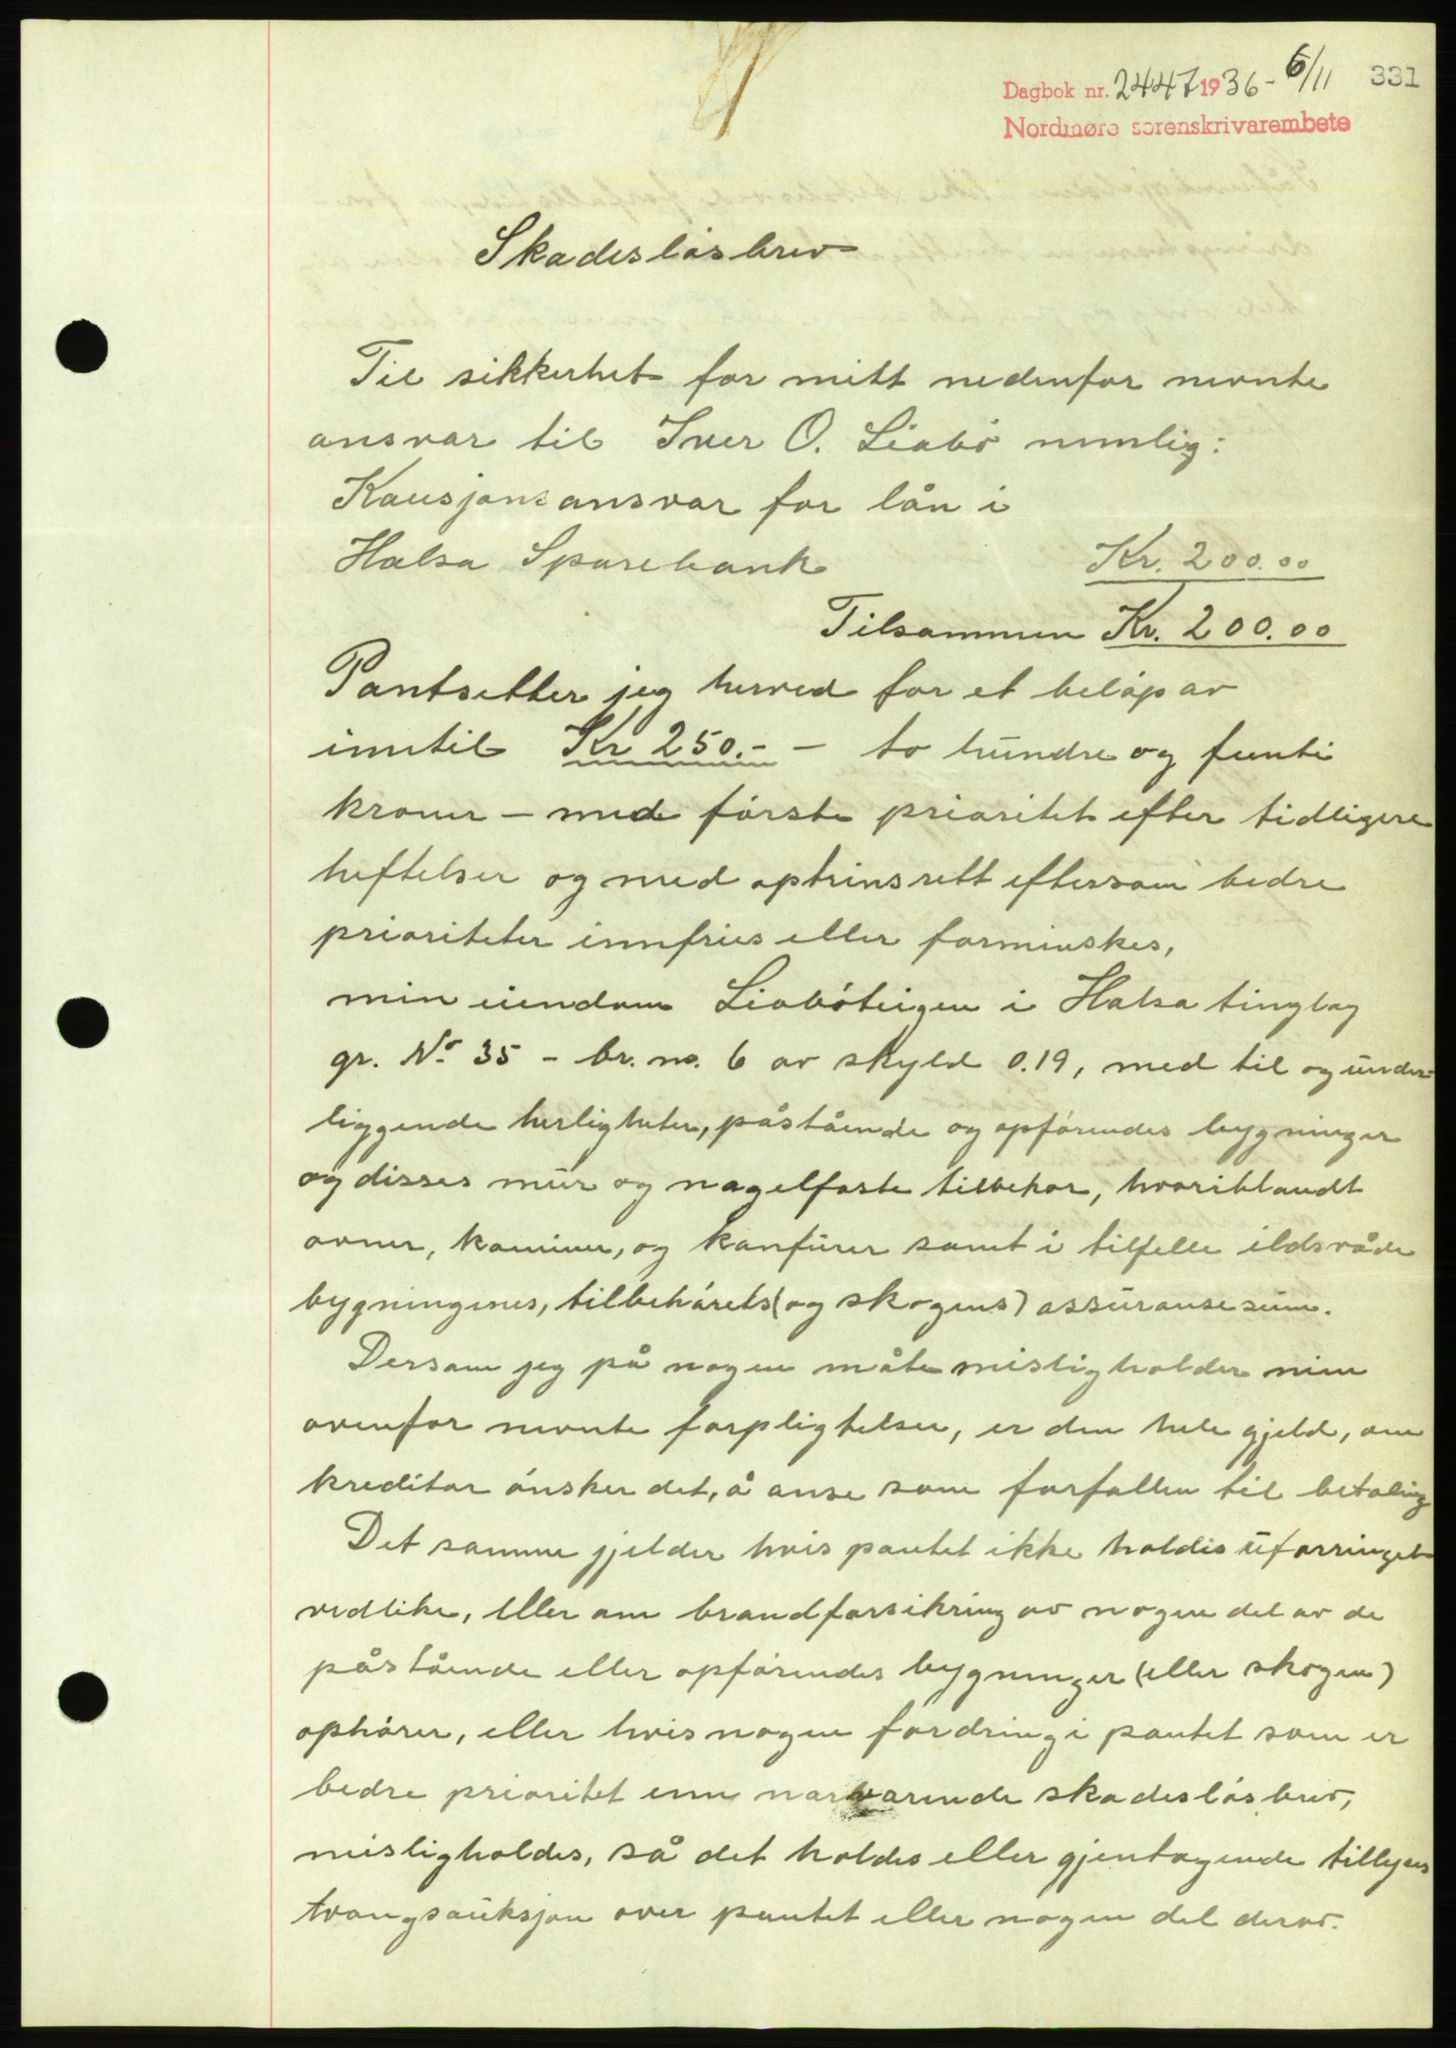 Dagbok nr. 2447 1936 - 6/11 331
Nordmøre sorenskrivarembete
Skadeslösbrev
Til sikkerhet for mitt nedenfor nevnte
ansvar til Iver O. Liabö nemlig:
Kausjonsansvar for lån i
Halsa Sparebank Kr. 200.00
Tilsammen Kr. 200.00
Pantsetter jeg herved for et belöp av
inntil Kr 250.- - to hundre og femti
kroner - med förste prioritet efter tidligere
heftelser og med optrinsrett eftersom bedre
prioriteter innfries eller forminskes,
min eiendom Liaböteigen i Halsa tinglag
gr. No 35 - br. no. 6 av skyld 0.19, med til og under-
liggende herligheter, påstående og opförendes bygninger
og disses mur og nagelfaste tilbehör, hvoriblandt
ovner, kaminer, og komfurer samt i tilfelle ildsvåde
bygningenes, tilbehörets (og skogens) assuransesum.
Dersom jeg på nogen måte misligholder min
ovenfor nevnte forpligtelser, er den hele gjeld, om
kreditor önsker det, å anse som forfallen til betaling
Det samme gjelder hvis pantet ikke holdes uforringet
vedlike, eller om brandforsikring av nogen del av de
påstående eller opförendes bygninger (eller skogen)
ophörer, eller hvis nogen fordring i pantet som er
bedre prioritet enn nærværende skadeslösbrev,
misligholdes, så det holdes eller gjentagende tillyses
tvangsauksjon over pantet eller nogen del derav.